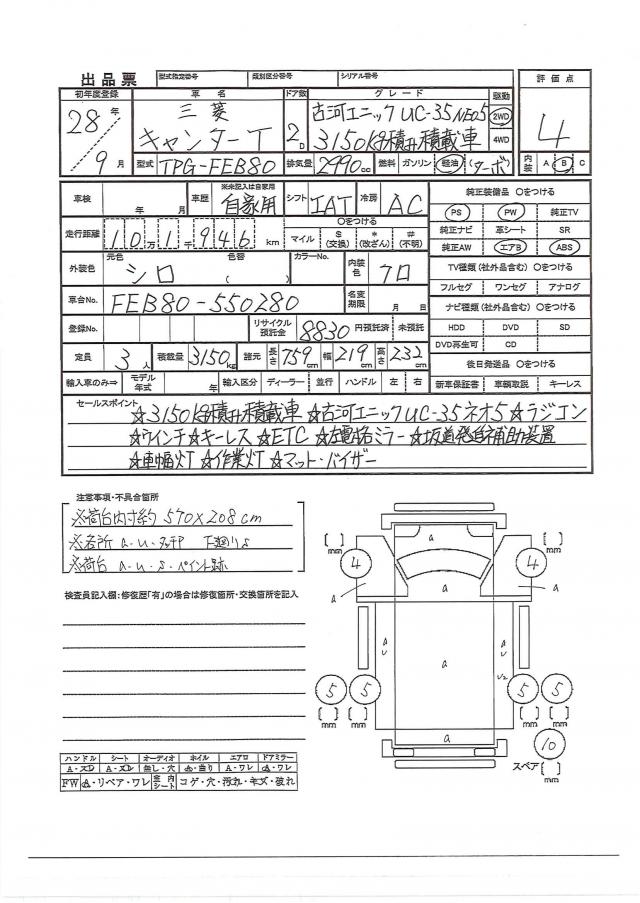 出品票 型式指定番号 類別区分番号 シリアル番号
初年度登録 車名 ドア数 グレード 駆動 評価点
28年 三菱 古河ユニックUC-35NEO5 2WD
9月 キャンターT 2D 3150kg積み積載車 4WD 4
型式 TPG-FEB80 排気量 2990cc 燃料 ガソリン 軽油 (ターボ) 内装 A B C
車検 年 月 車歴 ※未記入は自家用 自家用 シフト IAT 冷房 AC 純正装備品 〇をつける
PS PW 純正TV
走行距離 10万1千946km 〇をつける マイル $(交換) *(改ざん) #(不明) 純正ナビ 革シート SR
純正AW エアB ABS
外装色 元色 シロ 色替 ( ) カラーNo. 内装色 クロ TV種類(社外品含む) 〇をつける
フルセグ ワンセグ アナログ
車台No. FEB80-550280 名変期限 月 日 ナビ種類(社外品含む) 〇をつける
登録No. リサイクル預託金 8830 円預託済 未預託 HDD DVD SD
DVD再生可 CD
定員 3人 積載量 3150kg 諸元 長さ 759cm 幅 219cm 高さ 232cm 後日発送品 〇をつける
輸入車のみ⇒ モデル年式 年 輸入区分 ディーラー 並行 ハンドル 左 右 新車保証書 車輌取説 キーレス
セールスポイント
☆3150kg積み積載車 ☆古河ユニックUC-35ネオ5 ☆ラジコン
☆ウインチ ☆キーレス ☆ETC ☆左電格ミラー ☆坂道発進補助装置
☆車幅灯 ☆作業灯 ☆マット・バイザー
注意事項・不具合箇所
※荷台内寸約 570×208cm
※各所 a・u・タッチP 下廻りS
※荷台 a・u・s・ペイント跡
検査員記入欄:修復歴「有」の場合は修復箇所・交換箇所を記入
[ ] mm a [ ] mm
4 4
a a
a u a a u2
5 5 5 5
[ ] mm [ ] mm [ ] mm [ ] mm
a
10
スペア [ ] mm
ハンドル シート オーディオ ホイル エアロ ドアミラー
A・スレ A・スレ 無し・穴 a・当り A・ワレ a・ワレ
FW a・リペア・ワレ 室内シート コゲ・穴・汚れ・キズ・破れ